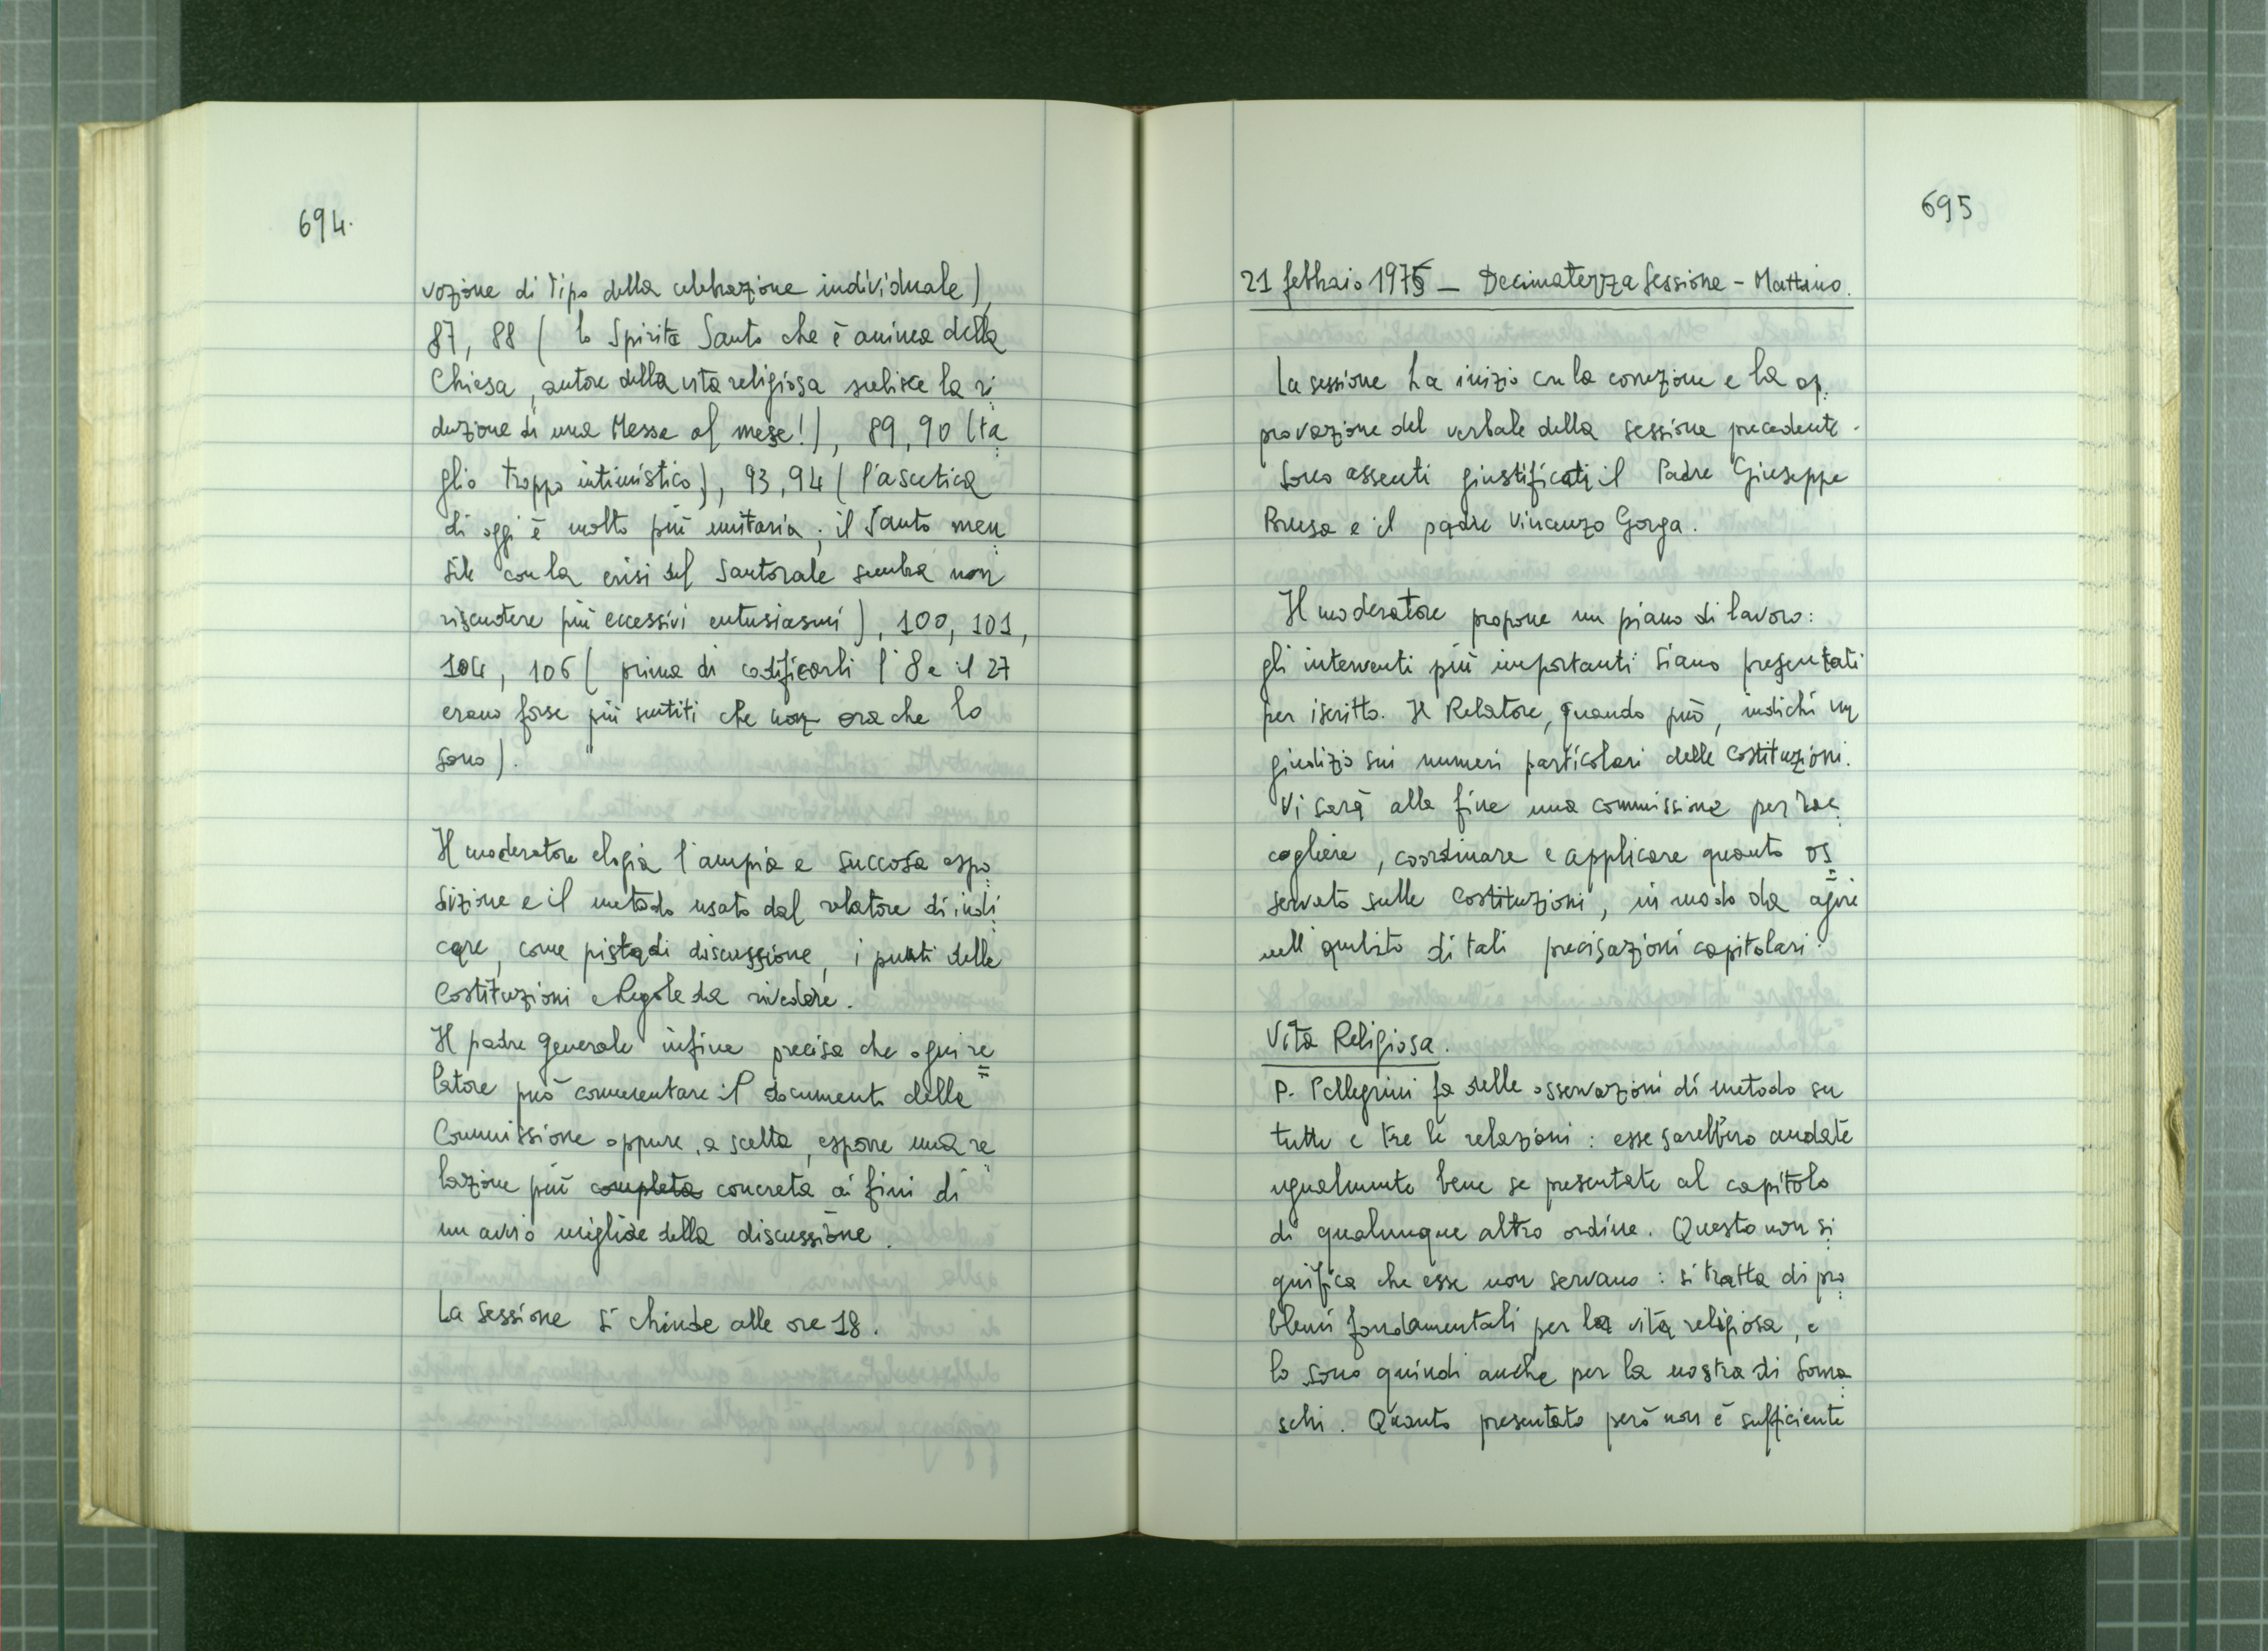 694.
vozione di tipo della celebrazione individuale),
87, 88 ( lo Spirito Santo che è anima della
Chiesa, autore della vita religiosa subisce la ri
duzione di una Messa al mese!), 89, 90 (ta
glio troppo intimistico), 93, 94 ( l'ascetica
di oggi è molto più unitaria; il Santo men
sile con la crisi del Santorale sembra non
riscuotere più eccessivi entusiasmi), 100, 101,
104, 106 ( prima di codificarli l'8 e il 27
erano forse più sentiti che non ora che lo
sono).
Il moderatore elogia l'ampia e succosa espo
sizione e il metodo usato dal relatore di indi
care, come pista di discussione, i punti delle
Costituzioni e Regole da rivedere.
Il padre Generale infine precisa che ogni re
latore può commentare il documento della
Commissione oppure, a scelta, esporre una re
lazione più completa concreta ai fini di
un avvio migliore della discussione.
La sessione si chiude alle ore 18.
695
21 febbraio 1975 - Decimaterza Sessione - Mattino.
La sessione ha inizio con la correzione e la ap
provazione del verbale della sessione precedente.
Sono assenti giustificati il Padre Giuseppe
Brusa e il padre Vincenzo Gorga.
Il moderatore propone un piano di lavoro:
gli interventi più importanti siano presentati
per iscritto. Il Relatore, quando può, indichi un
giudizio sui numeri particolari delle Costituzioni.
Vi sarà alla fine una commissione per rac
cogliere, coordinare e applicare quanto os
servato sulle Costituzioni, in modo da agire
nell'ambito di tali precisazioni capitolari.
Vita Religiosa.
P. Pellegrini fa delle osservazioni di metodo su
tutte e tre le relazioni: esse sarebbero andate
ugualmente bene se presentate al capitolo
di qualunque altro ordine. Questo non si
gnifica che esse non servano: si tratta di pro
blemi fondamentali per la vita religiosa, e
lo sono quindi anche per la nostra di Soma
schi. Quanto presentato però non è sufficiente